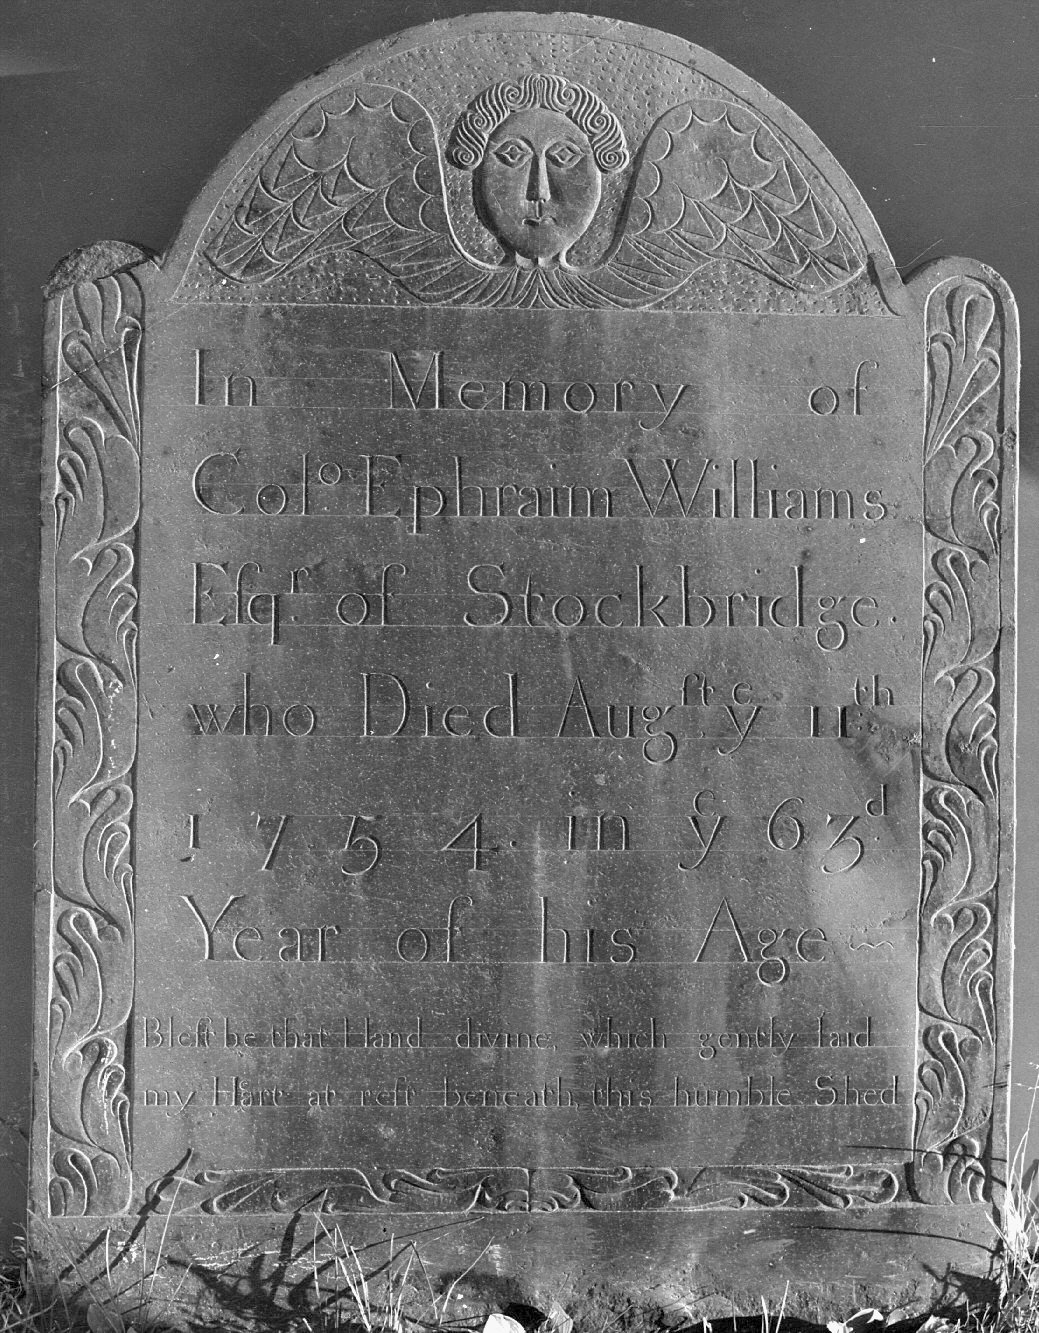 In Memory of
Colo Ephraim Williams
Eſqr. of Stockbridge.
who Died Augſt ye 11th
1754. in ye 63d.
Year of his Age
Bleſt be that Hand divine, which gently laid
my Hart at reſt beneath, this humble Shed